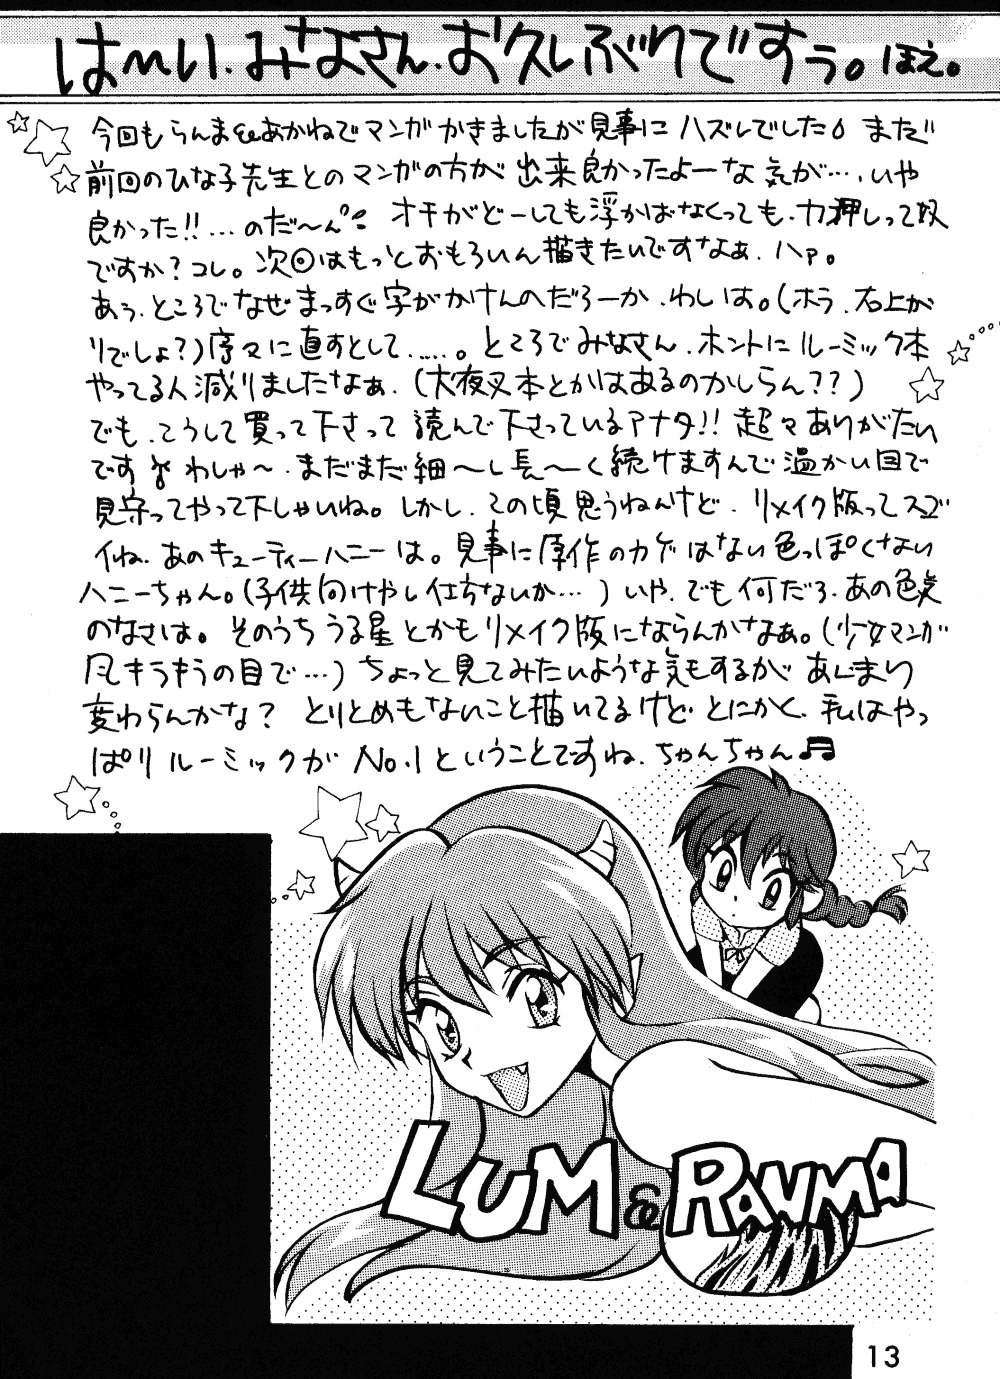 は〜い、みなさん、お久しぶりですぅ。ほえ。
今回もらんま&あかねでマンガかきましたが見事にハズレでした。まだ
前回のひな子先生とのマンガの方が出来良かったよーな気が…、いや
良かった!!…のだ〜ん オチがどーしても浮かばなくっても、力押しって奴
ですか?コレ。次回はもっとおもろいん描きたいですなぁ、ハァ。
あぅ、ところでなぜまっすぐ字がかけんのだろーか、わしは。(ホラ、右上が
りでしょ?)序々に直すとして……。ところでみなさん、ホントにルーミック本
やってる人減りましたなぁ、(犬夜叉本とかはあるのかしらん??)
でも、こうして買って下さって読んで下さっているアナタ!!超々ありがたい
です わしゃ〜、まだまだ細〜し長〜く続けますんで温かい目で
見守ってやって下しゃいね。しかし、この頃思うねんけど、リメイク版ってスゴ
イね、あのキューティーハニーは。見事に原作のカゲはない色っぽくない
ハニーちゃん。(子供向けやし仕方ないか…)いや、でも何だろ、あの色気
のなさは。そのうちうる星とかもリメイク版にならんかなぁ。(少女マンガ
風キラキラの目で…)ちょっと見てみたいような気もするがあんまり
変わらんかな? とりとめもないこと描いてるけどとにかく、私はやっ
ぱりルーミックがNo.1ということですね、ちゃんちゃん♬
LUM & RANMA
13